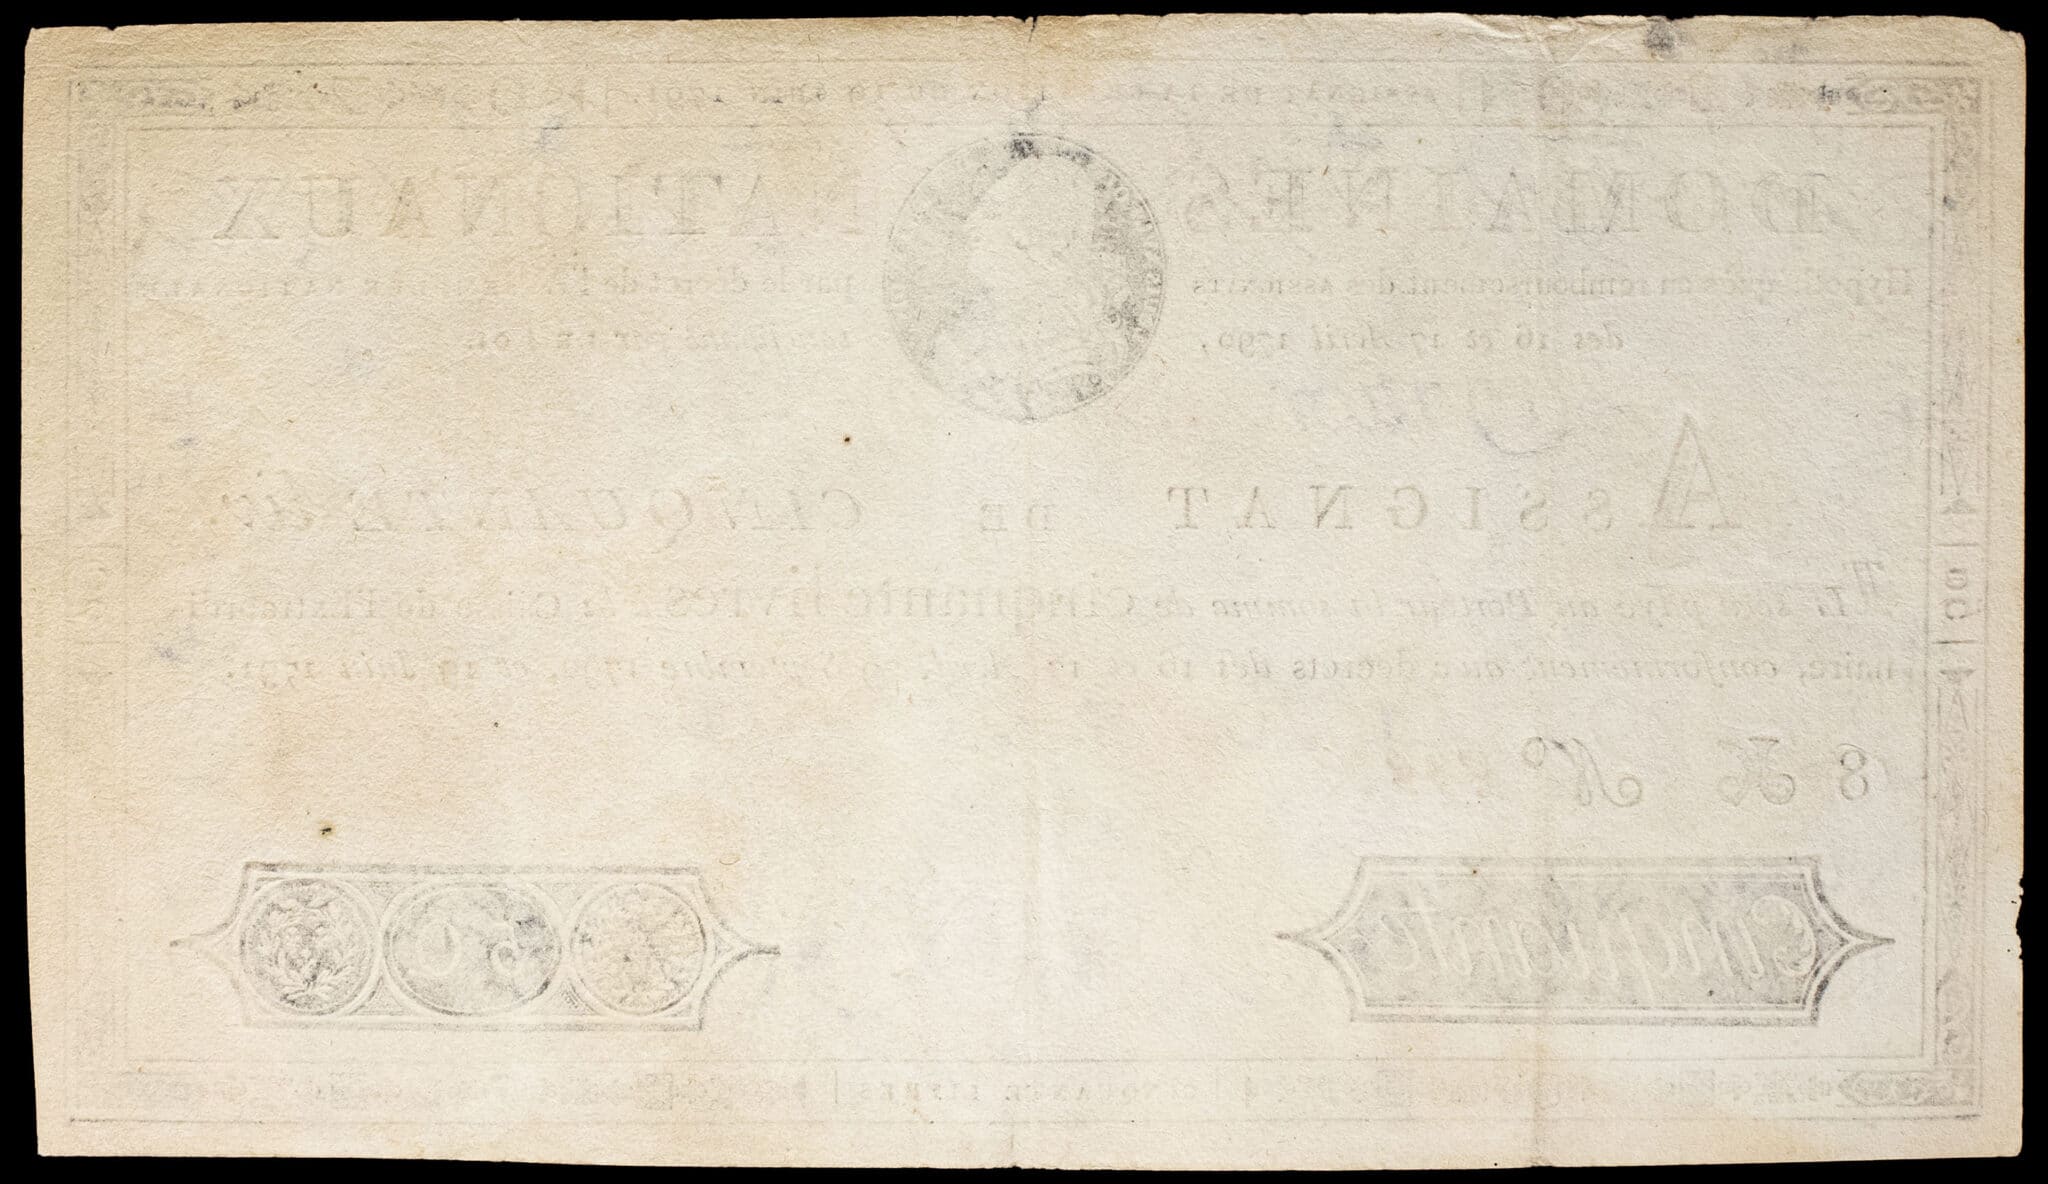 ASSIGNAT DE LA CRÉATION DU 19 JUIN 1791.
DOMAINES NATIONAUX
Hypothéqués au remboursement des ASSIGNATS par le décret de l'ASSEMBLÉE NATIONALE
des 16 et 17 Avril 1790, sanctionné par LE ROI.
ASSIGNAT DE CINQUANTE liv.
IL sera payé au Porteur la somme de cinquante livres à la Caisse de l'Extraordi-
naire, conformément aux décrets des 16 et 17 Avril, 29 Septembre 1790, et 19 Juin 1791.
8 K N°
Cinquante 50
CINQUANTE LIVRES